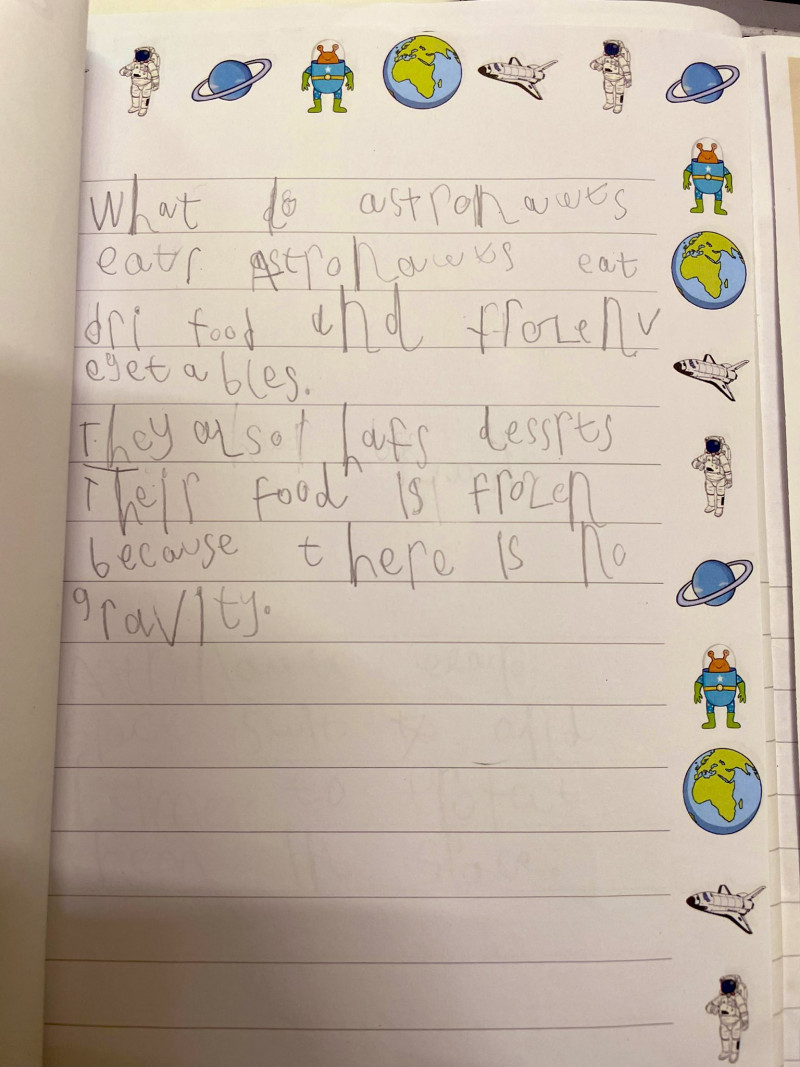 What do astronawts
eats Astronawts eat
dri food and frozen v
egetables.
They also hafs dessrts
Their food is frozen
because there is no
gravity.